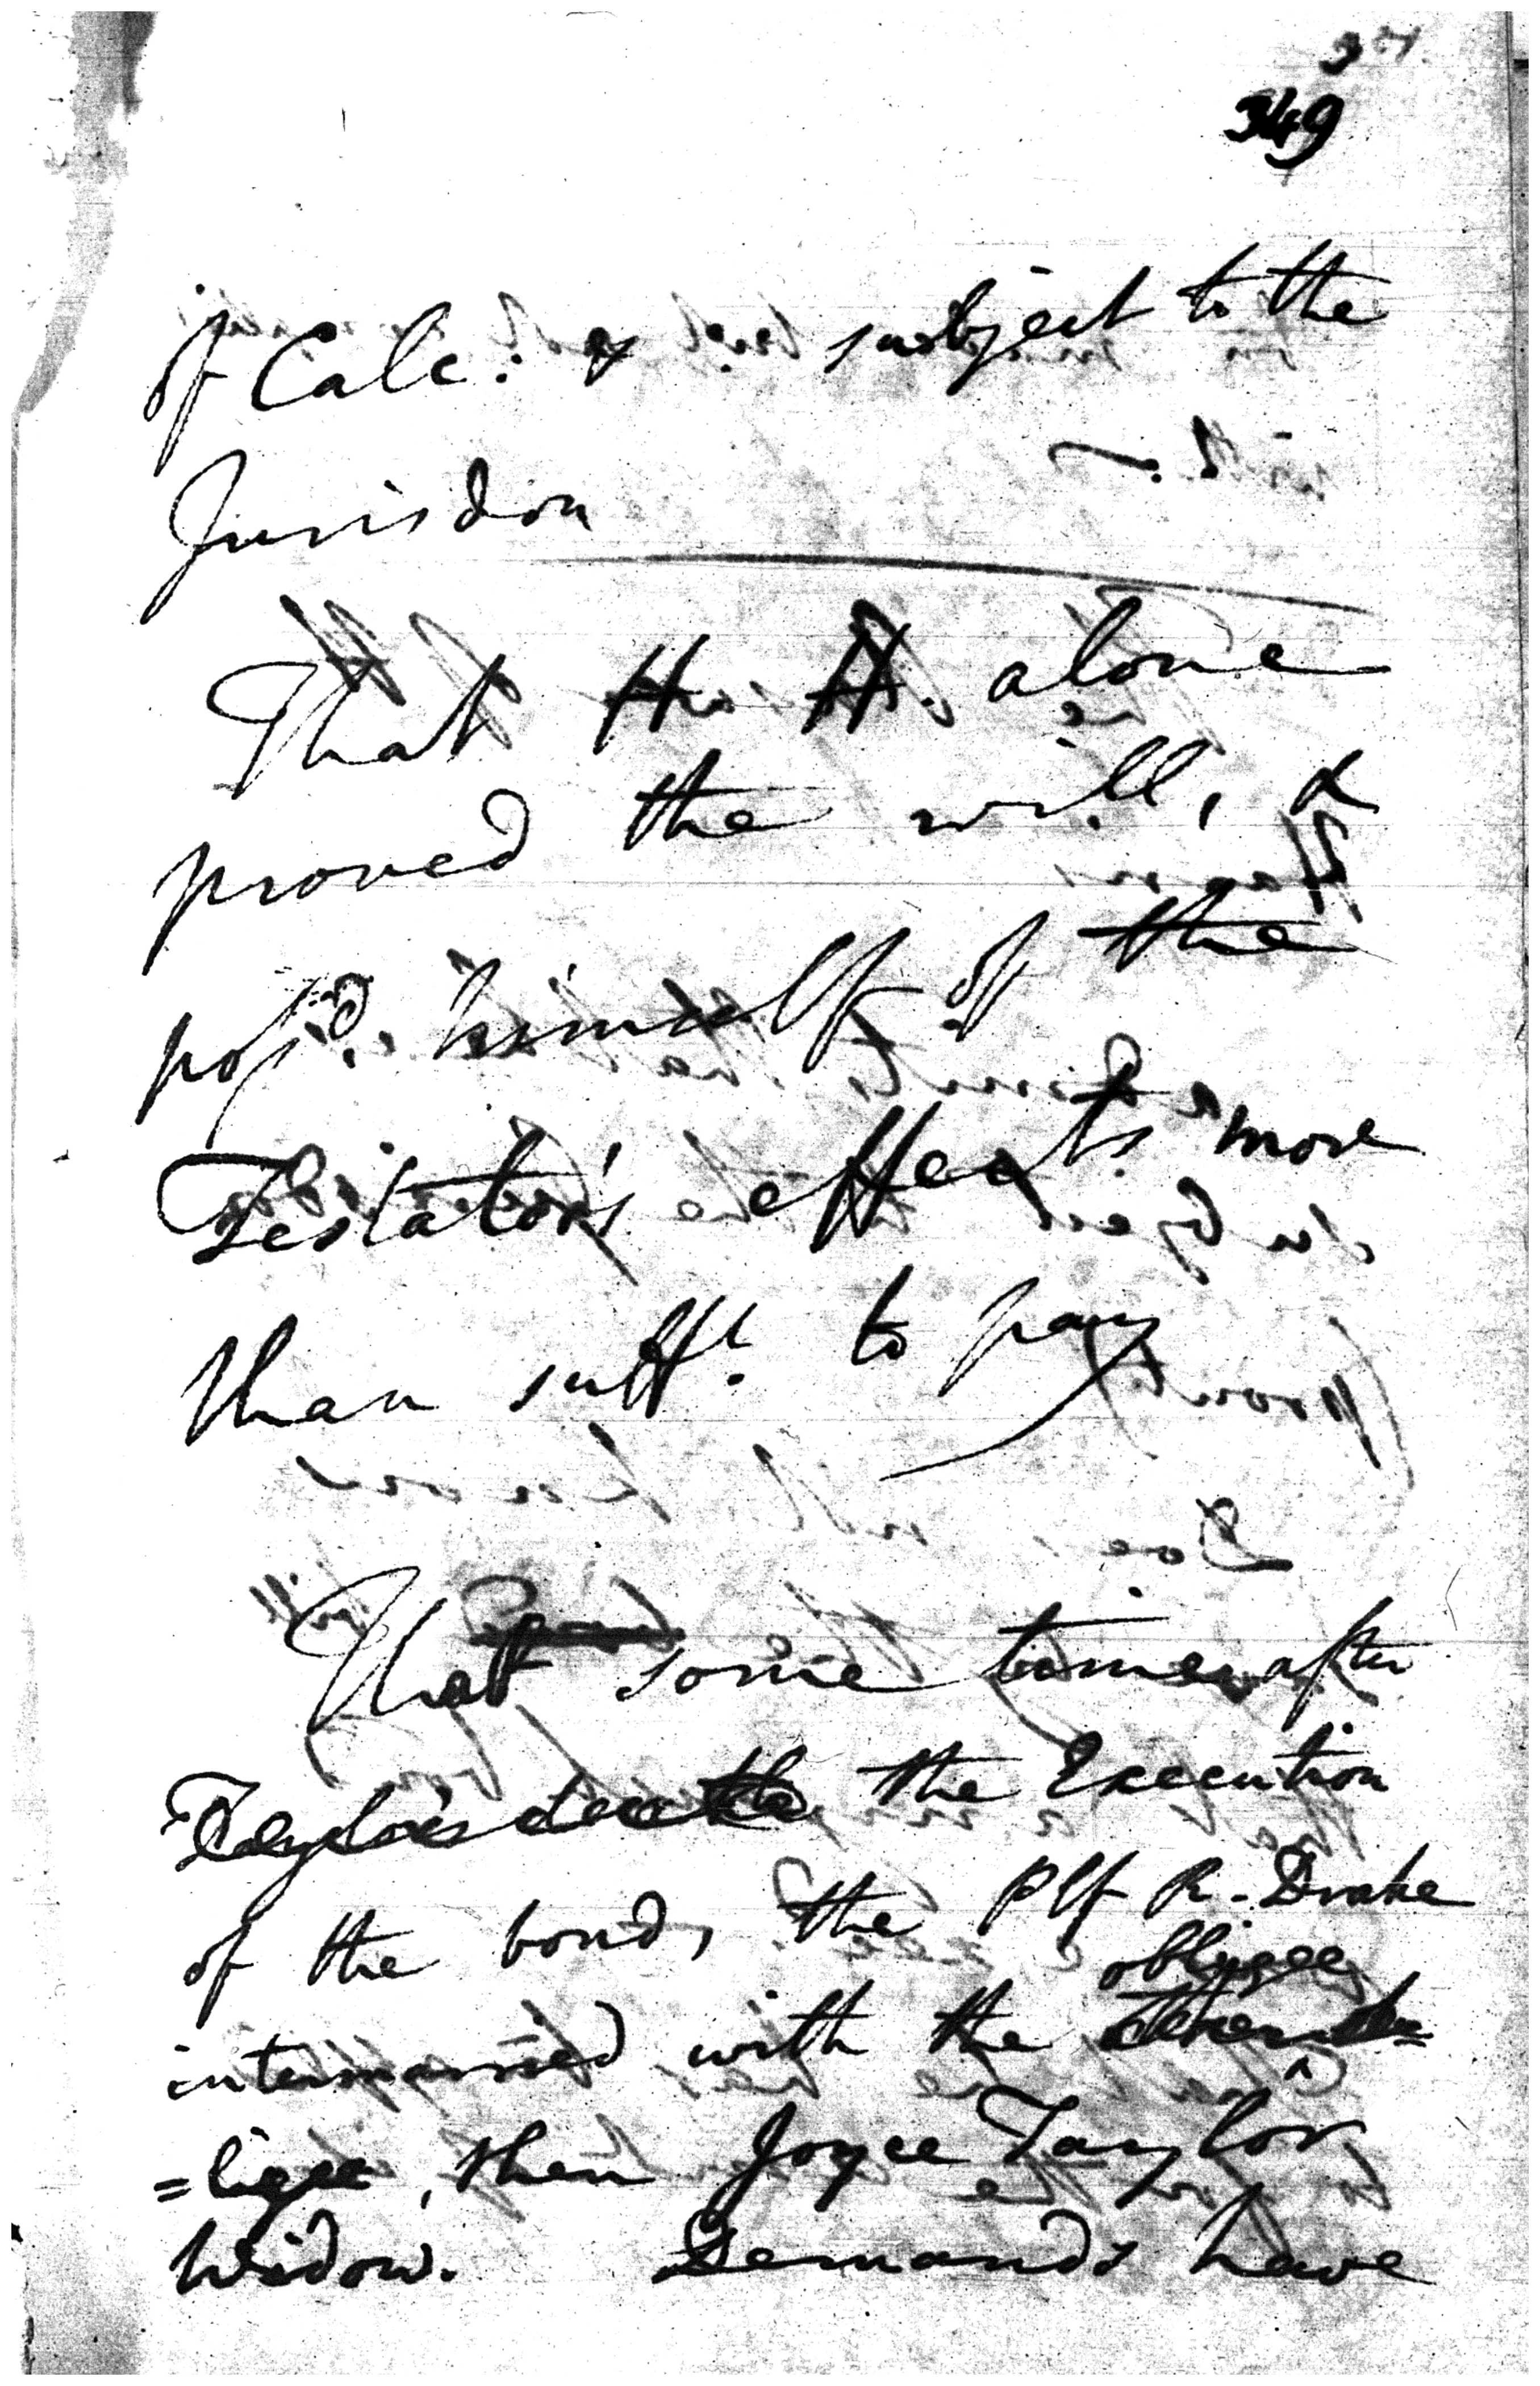 349
of Calc: & subject to the
Jurisdon
That H. H. alone
proved the will, &
posd. himself of the
Testator's effects more
than sufft. to pay
That some time after
Taylor's death the Execution
of the bond, the Plf R. Drake
obligee
intermarried with the
=ligee, then Joyce Taylor
Widow. Demands have